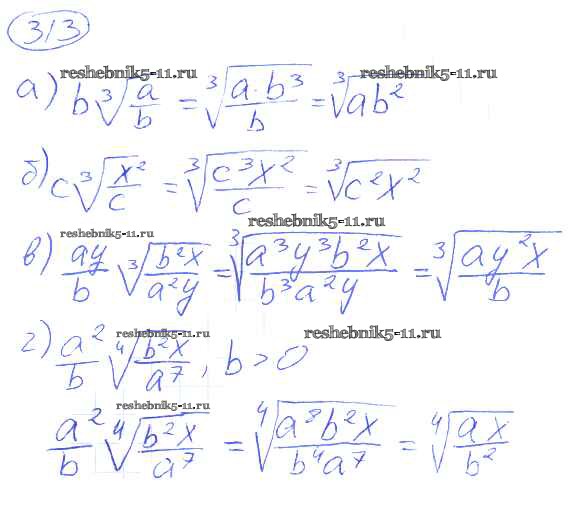 313
reshebnik5-11.ru reshebnik5-11.ru
а) b∛(a/b) = ∛(a·b³/b) = ∛ab²
б) c∛(x²/c) = ∛(c³x²/c) = ∛c²x²
reshebnik5-11.ru reshebnik5-11.ru
в) ay/b ∛(b²x/a²y) = ∛(a³y³b²x/b³a²y) = ∛(ay²x/b)
reshebnik5-11.ru reshebnik5-11.ru
г) a²/b ∜(b²x/a⁷), b > 0
reshebnik5-11.ru
a²/b ∜(b²x/a⁷) = ∜(a⁸b²x/b⁴a⁷) = ∜(ax/b²)